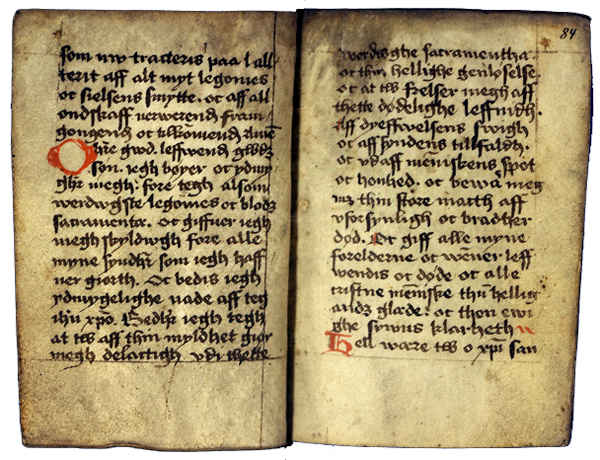 som nw tracteris paa l all
terit aff alt myt legomes
oc sielsens smytte. oc aff all
ondskaff nerwerend fram
gongend oc tilkomend amē
Ohr̄e gwd. leffwend gwdz
son. iegh bøyer oc ydmy
ghr megh: fore tegh alsom
werdwgste legomes oc blodz
sacramenta. Oc giffuer iegh
megh skyldwgh fore alle
myne syndhr som iegh haff
uer giorth. Oc bedis iegh
ydmygelighe nade aff teg
ihū xp̄o. Bedhr iegh tegh
at tw aff thin myldhet giør
megh delactigh vdi thette
84
werdwghe sacramentha.
oc thin hellighe genløselse.
oc at tw frelser megh aff
thette dødelighe leffnidh.
aff dyeffwelsens swigh
oc aff syndens tilfaldh.
oc vdaff mēniskens spot
oc honhed. oc bewar̄ meg
thin store macth aff
vforsynligh oc bradher
død. Oc giff alle myne
forelderne oc wēner leff
wendis oc døde oc alle
cristne mēniske thin hellig
andz glæde: oc thon ewi
ghe synnis klarheth
Hell wære tw o xp̄i san